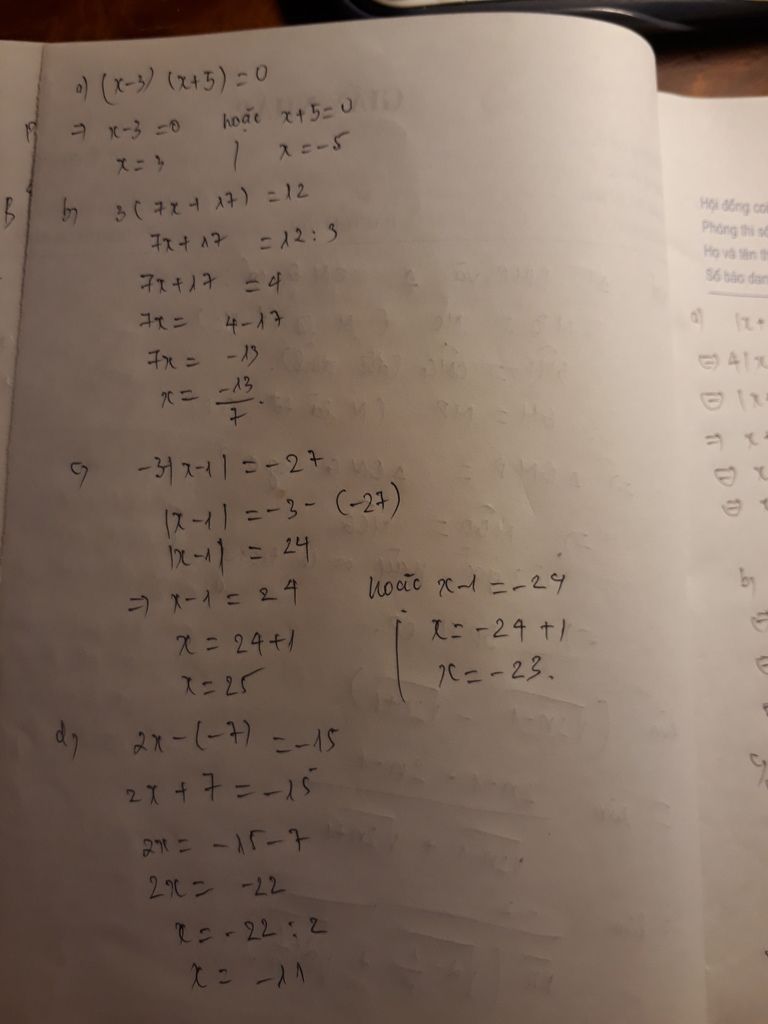 a) (x-3) (x+5) = 0
=> x-3 = 0 hoặc x+5=0
x = 3 | x = -5
b) 3(7x+17) = 12
7x+17 = 12:3
7x+17 = 4
7x = 4-17
7x = -13
x = -13/7.
c) -3|x-1| = -27
|x-1| = -3 - (-27)
|x-1| = 24
=> x-1 = 24 hoặc x-1 = -24
x = 24+1 | x = -24+1
x = 25 x = -23.
d) 2x-(-7) = -15
2x+7 = -15
2x = -15-7
2x = -22
x = -22:2
x = -11
Hội đồng coi
Phòng thi số
Họ và tên th
Số báo dan
a) |x+
⇔ 4|x
⇔ |x+
=> x+
⇔ x
⇔ x
b)
c)